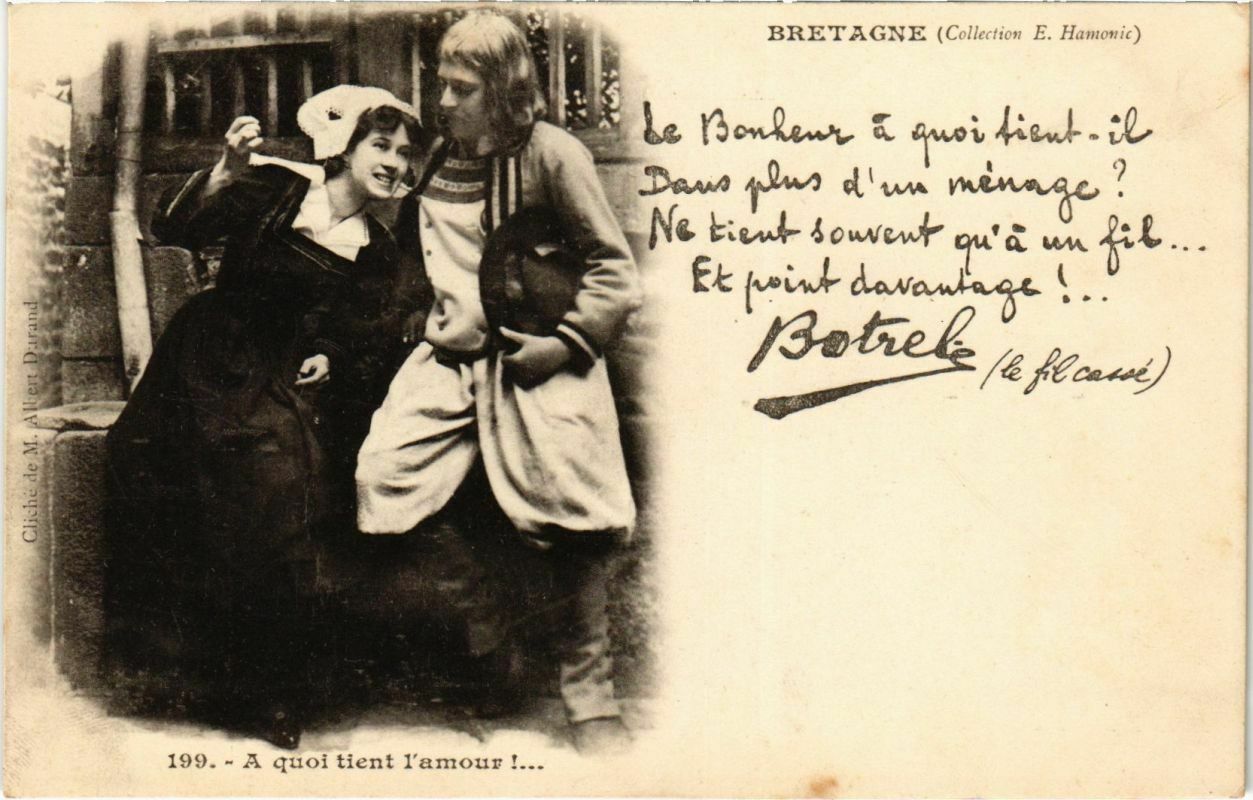 BRETAGNE (Collection E. Hamonic)
Le Bonheur à quoi tient-il
Dans plus d'un ménage ?
Ne tient souvent qu'à un fil...
Et point davantage !...
Botrel
(le fil cassé)
Cliché de M. Albert Durand
199. - A quoi tient l'amour !...